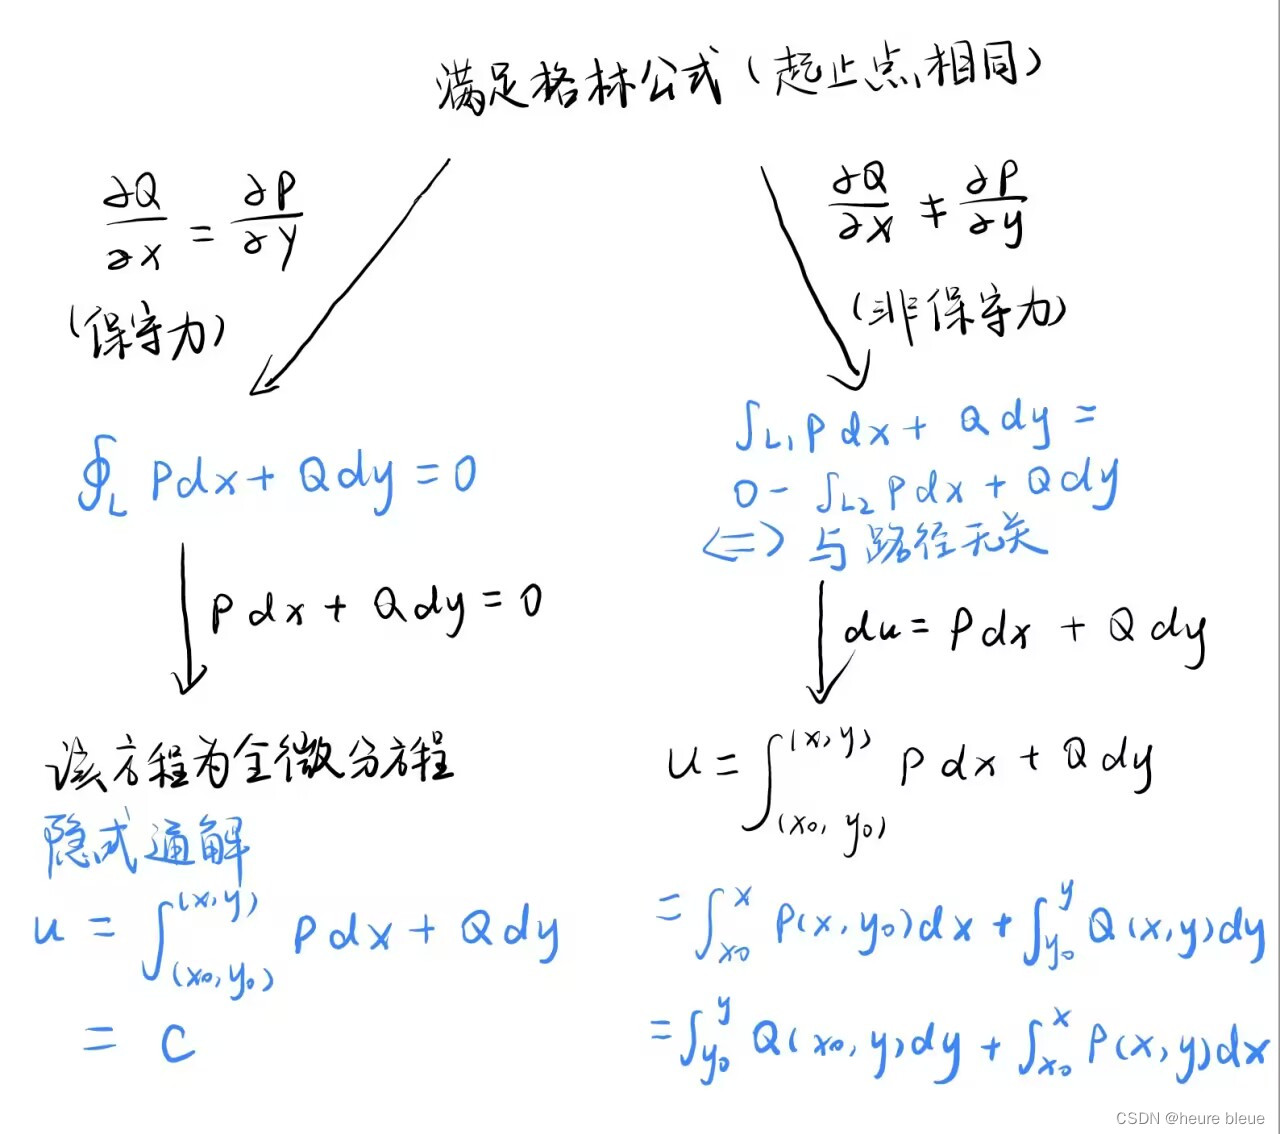 满足格林公式（起止点相同）
∂Q/∂x = ∂P/∂y
（保守力）
∮_L Pdx + Qdy = 0
Pdx + Qdy = 0
该方程为全微分方程
隐式通解
u = ∫_(x₀,y₀)^(x,y) Pdx + Qdy
= C
∂Q/∂x ≠ ∂P/∂y
（非保守力）
∫_L₁ Pdx + Qdy =
0 - ∫_L₂ Pdx + Qdy
<=> 与路径无关
du = Pdx + Qdy
u = ∫_(x₀,y₀)^(x,y) Pdx + Qdy
= ∫_x₀^x P(x,y₀)dx + ∫_y₀^y Q(x,y)dy
= ∫_y₀^y Q(x₀,y)dy + ∫_x₀^x P(x,y)dx
CSDN @heure bleue